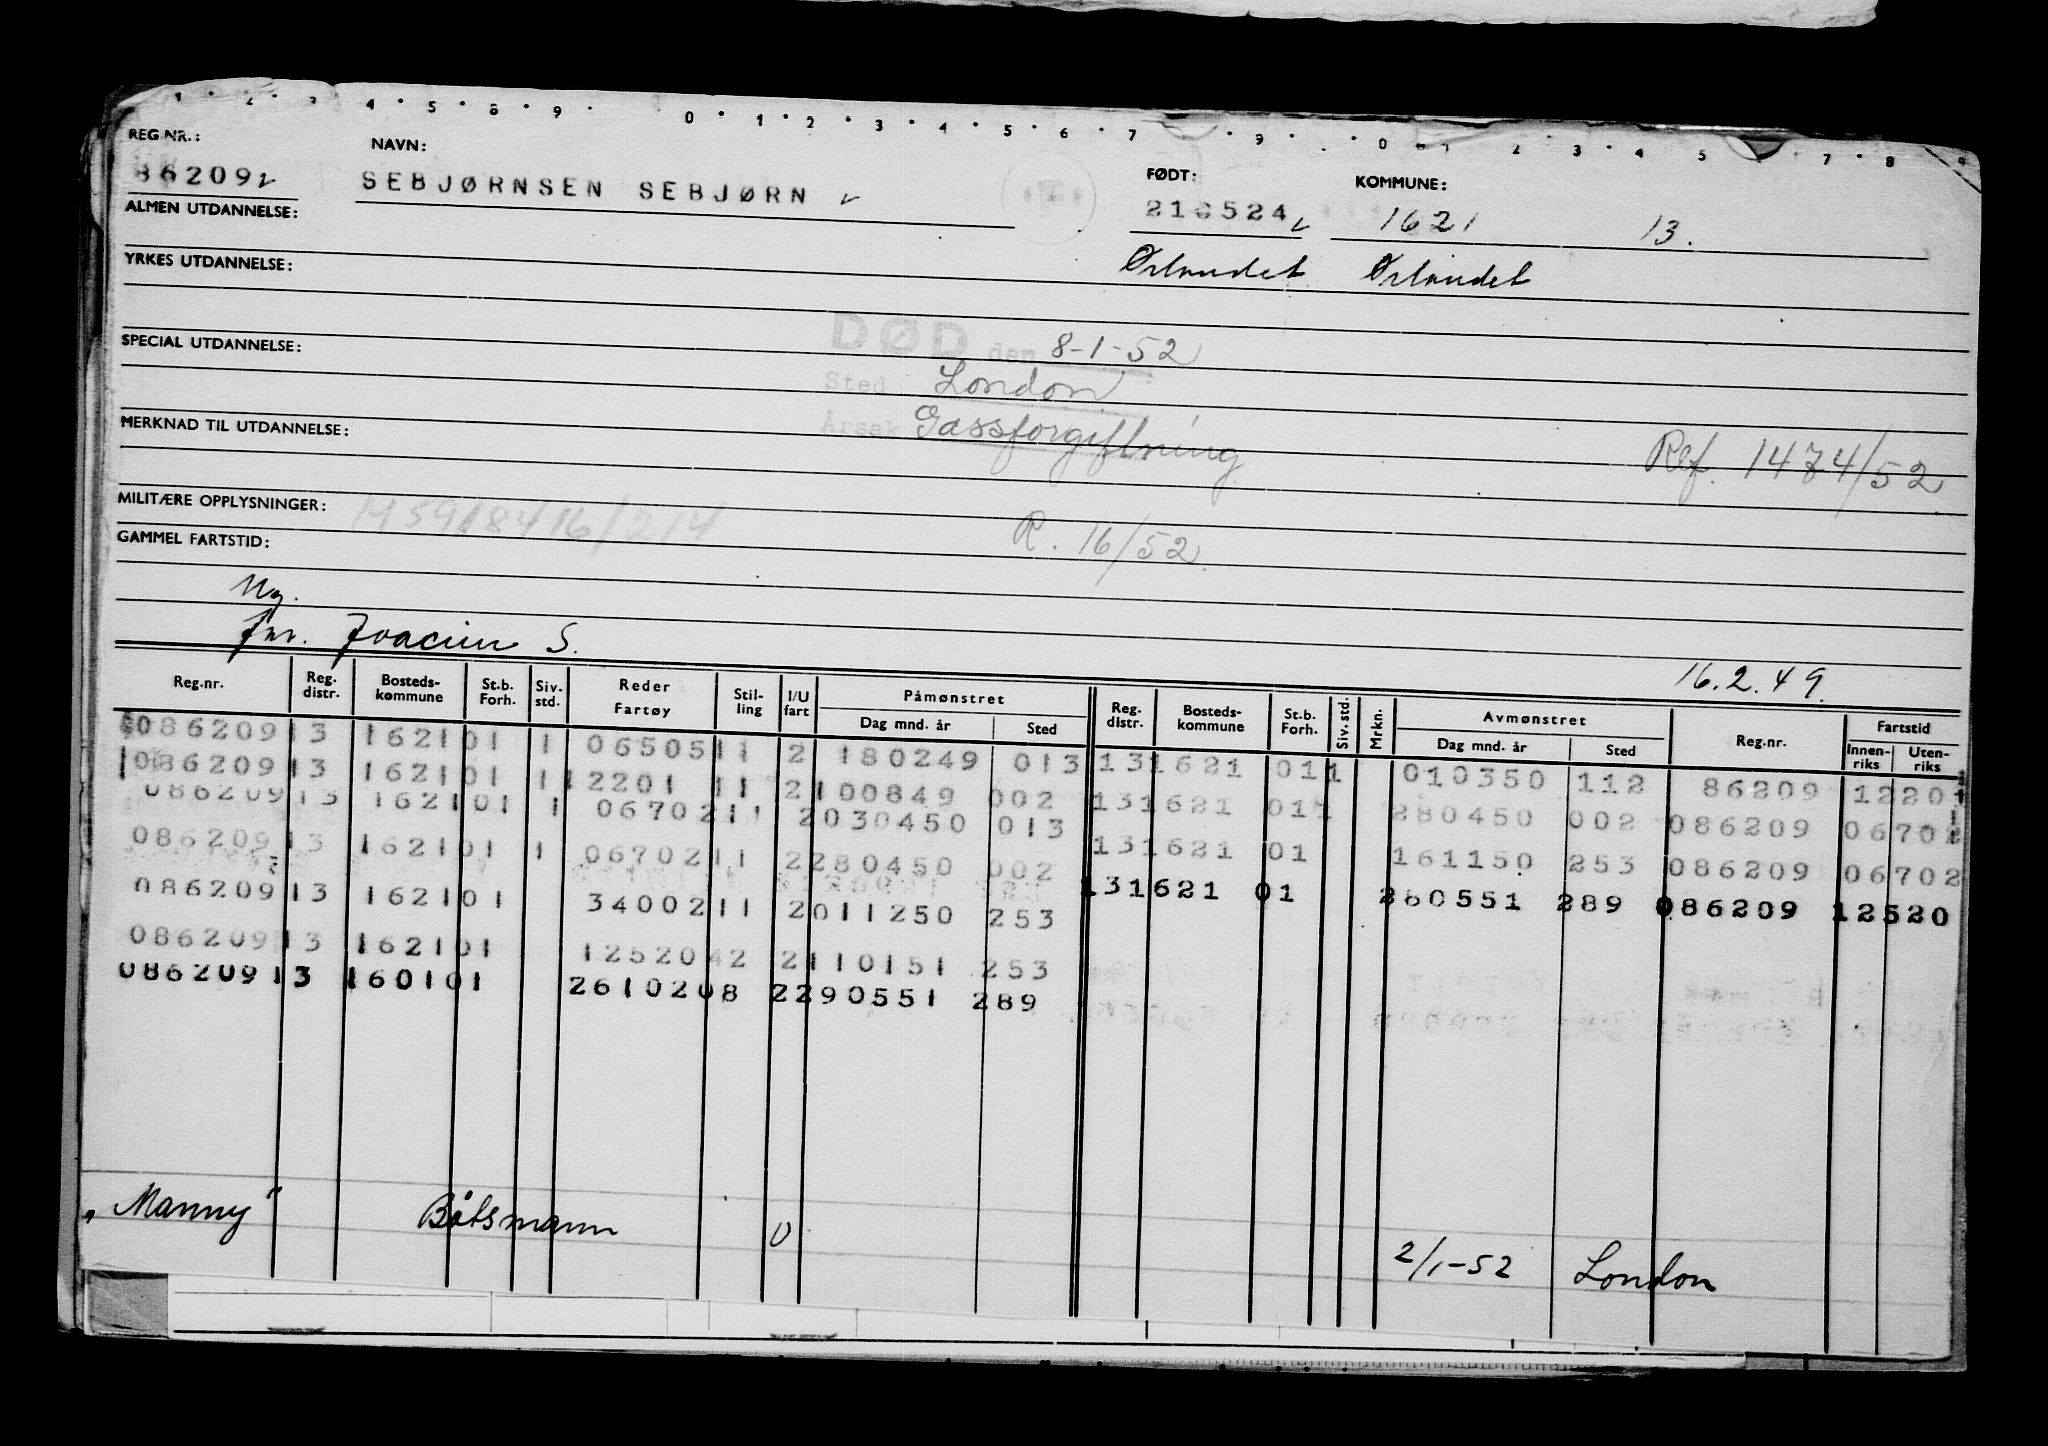 1 · 2 · 3 · 4 · 5 · 6 · 9 · 0 · 1 · 2 · 3 · 4 · 5 · 6 · 7 · 9 · 0 1 2 · 3 · 4 · 5 · 7 · 8 · 9
REG.NR.: NAVN: FØDT: KOMMUNE:
86209 SEBJØRNSEN SEBJØRN 210524 1621 13.
ALMEN UTDANNELSE:
Ørlandet Ørlandet
YRKES UTDANNELSE:
DØD den 8-1-52
SPECIAL UTDANNELSE:
Sted London
Årsak Gassforgiftning
MERKNAD TIL UTDANNELSE:
Ref. 1474/52
MILITÆRE OPPLYSNINGER:
R. 16/52
GAMMEL FARTSTID:
Joacim S.
16.2.49.
Reg.nr. Reg. distr. Bosteds-kommune St.b. Forh. Siv. std. Reder Fartøy Stilling I/U fart Påmønstret Dag mnd. år Sted Reg. distr. Bosteds-kommune St.b. Forh. Siv. std. Mrkn. Avmønstret Dag mnd. år Sted Reg.nr. Fartstid Innen-riks Uten-riks
086209 13 1621 01 1 06505 11 2 180249 013 13 1621 01 1 010350 112 86209 12201
086209 13 1621 01 1 12201 11 2 100849 002 13 1621 01 280450 002 086209 06702
086209 13 1621 01 1 06702 11 2 030450 013 13 1621 01 161150 253 086209 06702
086209 13 1621 01 1 06702 11 2 280450 002 13 1621 01 280551 289 086209 12520
086209 13 1621 01 34002 11 2 011250 253
086209 13 1621 01 12520 42 2 110151 253
086209 13 1601 01 26102 08 2 290551 289
„Manny" Båtsmann U 2/1-52 London